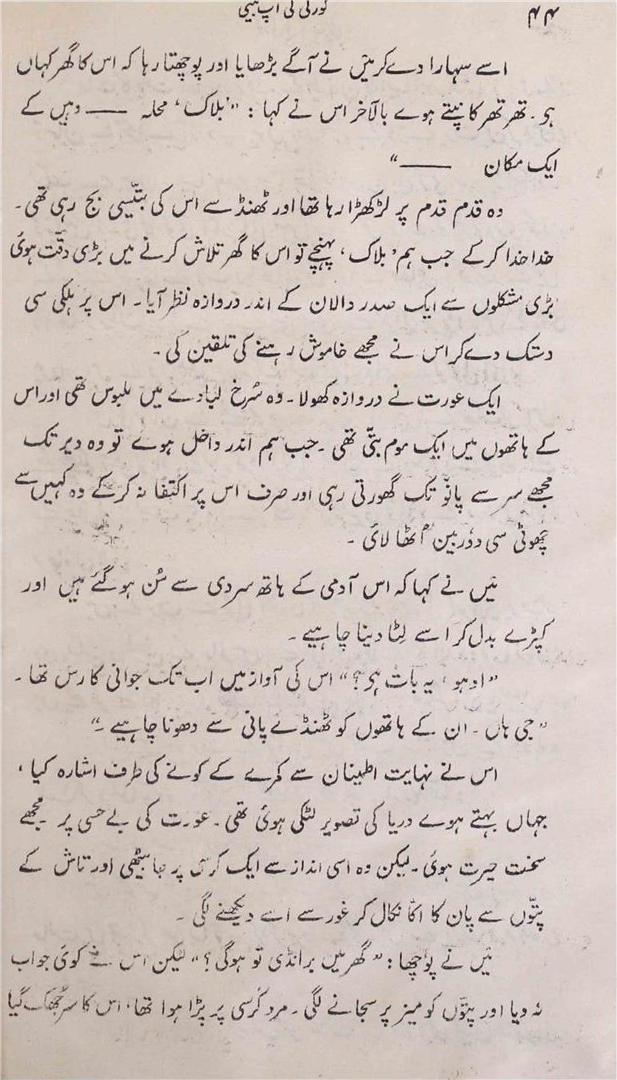 ۴۴ گورکی کی آپ بیتی
اسے سہارا دے کر میں نے آگے بڑھایا اور پوچھتا رہا کہ اس کا گھر کہاں
ہی۔ تھر تھر کانپتے ہوے بالآخر اس نے کہا : "بلاک' محلہ —— وہیں کے
ایک مکان ——"
وہ قدم قدم پر لڑکھڑا رہا تھا اور ٹھنڈ سے اس کی بتّیسی بج رہی تھی۔
خدا خدا کرکے جب ہم 'بلاک' پہنچے تو اس کا گھر تلاش کرنے میں بڑی دقّت ہوئ
بڑی مشکلوں سے ایک صدر دالان کے اندر دروازہ نظر آیا۔ اس پر ہلکی سی
دستک دے کر اس نے مجھے خاموش رہنے کی تلقین کی۔
ایک عورت نے دروازہ کھولا۔ وہ سُرخ لبادے میں ملبوس تھی اور اس
کے ہاتھوں میں ایک موم بتّی تھی۔ جب ہم اندر داخل ہوے تو وہ دیر تک
مجھے سر سے پانو تک گھورتی رہی اور صرف اس پر اکتفا نہ کرکے وہ کہیں سے
چھوٹی سی دوربین اُٹھا لائ۔
میں نے کہا کہ اس آدمی کے ہاتھ سردی سے سُن ہو گئے ہیں اور
کپڑے بدل کر اسے لِٹا دینا چاہیے۔
"اوہو، یہ بات ہی؟" اس کی آواز میں اب تک جوانی کا رس تھا۔
"جی ہاں۔ ان کے ہاتھوں کو ٹھنڈے پانی سے دھونا چاہیے۔"
اس نے نہایت اطینان سے کمرے کے کونے کی طرف اشارہ کیا،
جہاں بہتے ہوے دریا کی تصویر لٹکی ہوئ تھی۔ عورت کی بے حسی پر مجھے
سخت حیرت ہوئ۔ لیکن وہ اسی انداز سے ایک کرسی پر جا بیٹھی اور تاش کے
پتّوں سے پان کا اکّا نکال کر غور سے اسے دیکھنے لگی۔
میں نے پوچھا : "گھر میں برانڈی تو ہوگی؟" لیکن اس نے کوئ جواب
نہ دیا اور پتّوں کو میز پر سجانے لگی۔ مرد کرسی پر پڑا ہوا تھا، اس کا سر جھک گیا